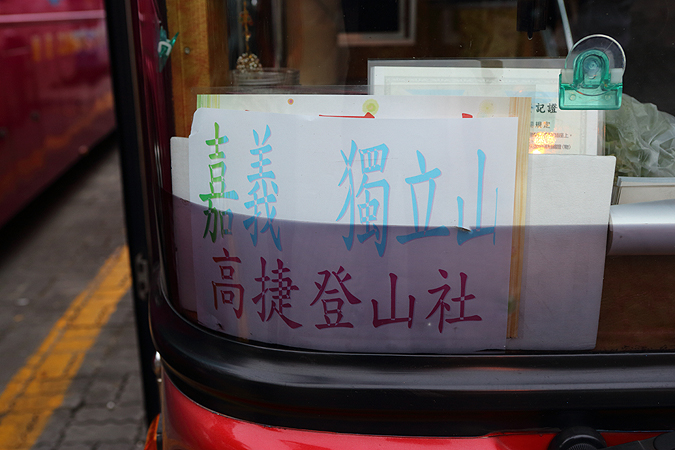 嘉義 獨立山
高捷登山社
記證